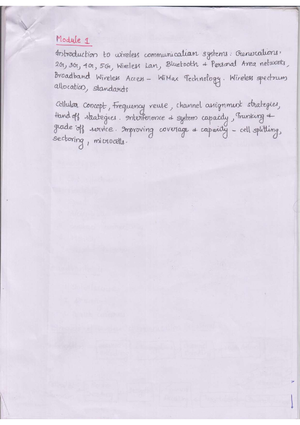 Module 1
Introduction to wireless communication systems. Generations-
2G, 3G, 4G, 5G, Wireless Lan, Bluetooth & Personal Area networks,
Broadband Wireless Access - WiMax Technology. Wireless spectrum
allocation, standards
Cellular Concept, Frequency reuse, channel assignment strategies,
Hand off strategies. Interference & system capacity, Trunking &
grade off service. Improving coverage & capacity - cell splitting,
sectoring, microcells.